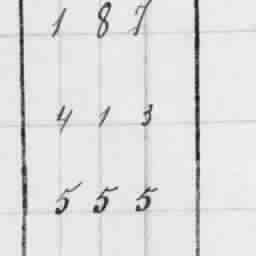 187
413
555